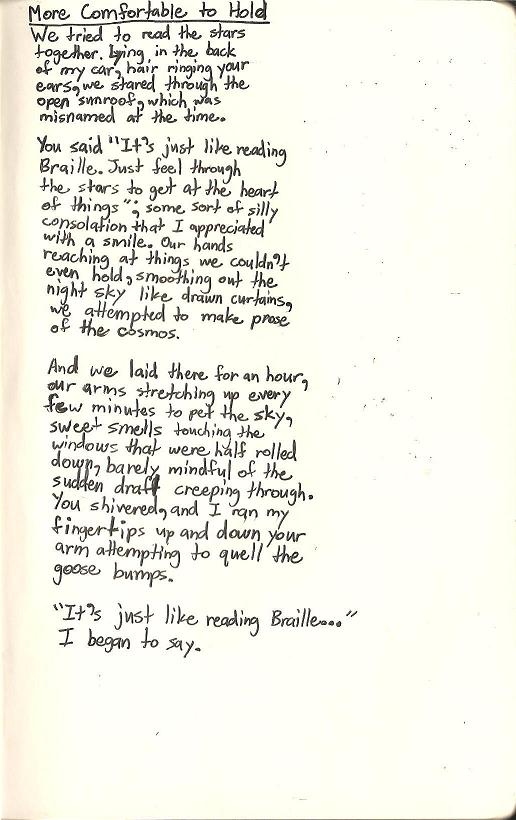 More Comfortable to Hold
We tried to read the stars
together. Lying in the back
of my car, hair ringing your
ears, we stared through the
open sunroof, which was
misnamed at the time.
You said "It's just like reading
Braille. Just feel through
the stars to get at the heart
of things"; some sort of silly
consolation that I appreciated
with a smile. Our hands
reaching at things we couldn't
even hold, smoothing out the
night sky like drawn curtains,
we attempted to make prose
of the cosmos.
And we laid there for an hour,
our arms stretching up every
few minutes to pet the sky,
sweet smells touching the
windows that were half rolled
down, barely mindful of the
sudden draft creeping through.
You shivered, and I ran my
fingertips up and down your
arm attempting to quell the
goose bumps.
"It's just like reading Braille..."
I began to say.